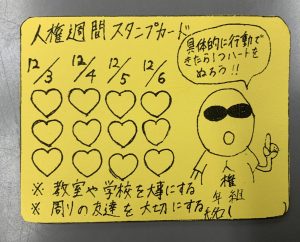 人権週間スタンプカード
12/3 12/4 12/5 12/6
具体的に行動で
きたら1つハートを
ぬろう!!
人権
年 組
※ 教室や学校を大事にする
※ 周りの友達を大切にする